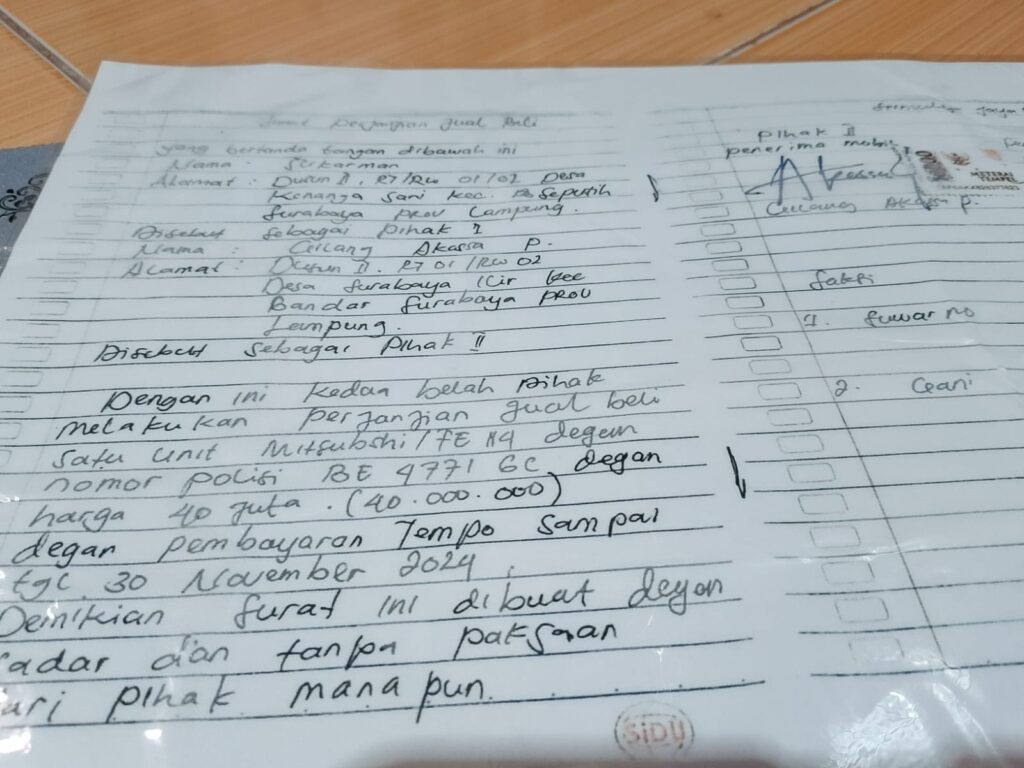 Surat Perjanjian Jual Beli
yang bertanda tangan dibawah ini
Nama : Sukarman
Alamat : Dusun II, RT/RW 01/02 Desa
Kenanga Sari Kec. Seputih
Surabaya Prov Lampung.
Disebut sebagai Pihak I
Nama : Gilang Akassa P.
Alamat : Dusun II. RT 01/RW 02
Desa Surabaya Ilir Kec
Bandar Surabaya Prov
Lampung.
Disebut sebagai Pihak II
Dengan ini Kedua belah Pihak
melakukan perjanjian jual beli
satu unit Mitsubshi/FE 114 degan
nomor polisi BE 4771 GC degan
harga 40 juta. (40.000.000)
degan pembayaran Tempo sampai
tgl 30 November 2024
Demikian surat ini dibuat degan
sadar dan tanpa paksaan
dari pihak mana pun.
SiDU
Pihak II
penerima mobil
METERAI
TEMPEL
Gilang Akassa P.
Saksi
1. Suwarno
2. Geani